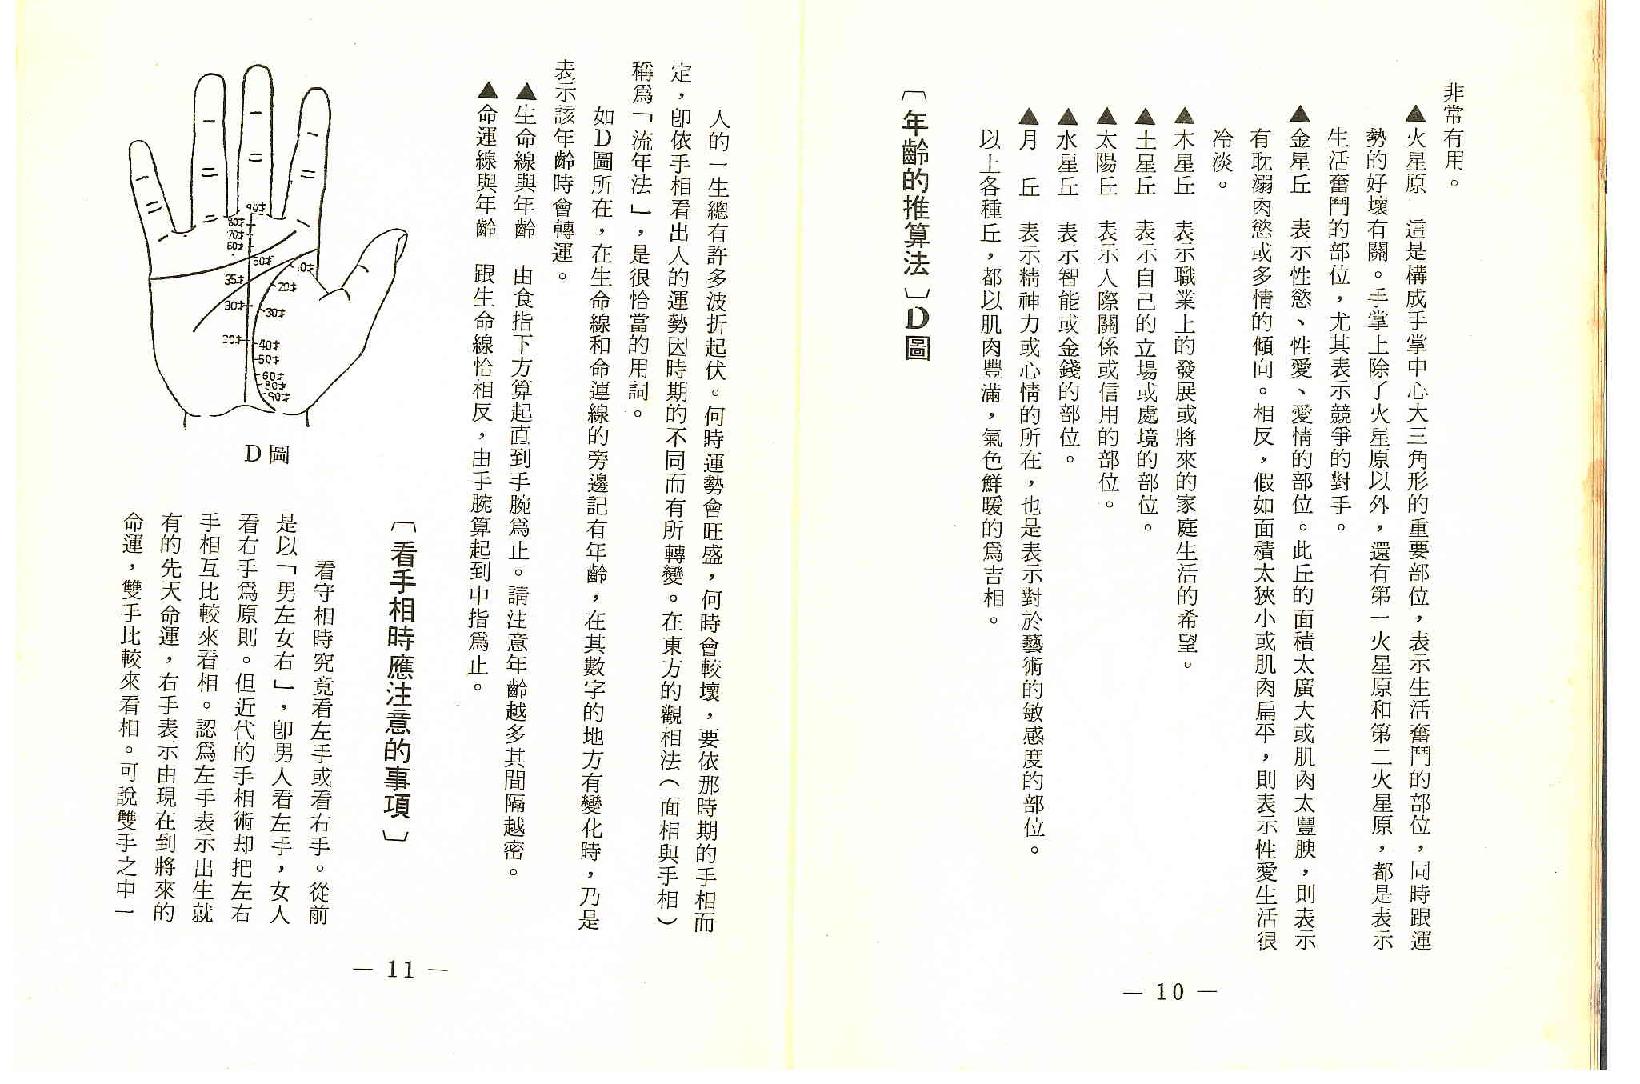 非常有用。
▲火星原　這是構成手掌中心大三角形的重要部位，表示生活奮鬥的部位，同時跟運
勢的好壞有關。手掌上除了火星原以外，還有第一火星原和第二火星原，都是表示
生活奮鬥的部位，尤其表示競爭的對手。
▲金星丘　表示性慾、性愛、愛情的部位。此丘的面積太廣大或肌肉太豐腴，則表示
有耽溺肉慾或多情的傾向。相反，假如面積太狹小或肌肉扁平，則表示性愛生活很
冷淡。
▲木星丘　表示職業上的發展或將來的家庭生活的希望。
▲土星丘　表示自己的立場或處境的部位。
▲太陽丘　表示人際關係或信用的部位。
▲水星丘　表示智能或金錢的部位。
▲月　丘　表示精神力或心情的所在，也是表示對於藝術的敏感度的部位。
以上各種丘，都以肌肉豐滿，氣色鮮暖的爲吉相。
〔年齡的推算法〕D圖
— 10 —
人的一生總有許多波折起伏。何時運勢會旺盛，何時會較壞，要依那時期的手相而
定，卽依手相看出人的運勢因時期的不同而有所轉變。在東方的觀相法（面相與手相）
稱爲「流年法」，是很恰當的用詞。
如D圖所在，在生命線和命運線的旁邊記有年齡，在其數字的地方有變化時，乃是
表示該年齡時會轉運。
▲生命線與年齡　由食指下方算起直到手腕爲止。請注意年齡越多其間隔越密。
▲命運線與年齡　跟生命線恰相反，由手腕算起到中指爲止。
90才
80才
70才
60才
50才
35才
30才
20才
10才
20才
30才
40才
50才
60才
80才
90才
D圖
〔看手相時應注意的事項〕
看守相時究竟看左手或看右手。從前
是以「男左女右」，卽男人看左手，女人
看右手爲原則。但近代的手相術却把左右
手相互比較來看相。認爲左手表示出生就
有的先天命運，右手表示由現在到將來的
命運，雙手比較來看相。可說雙手之中一
— 11 —